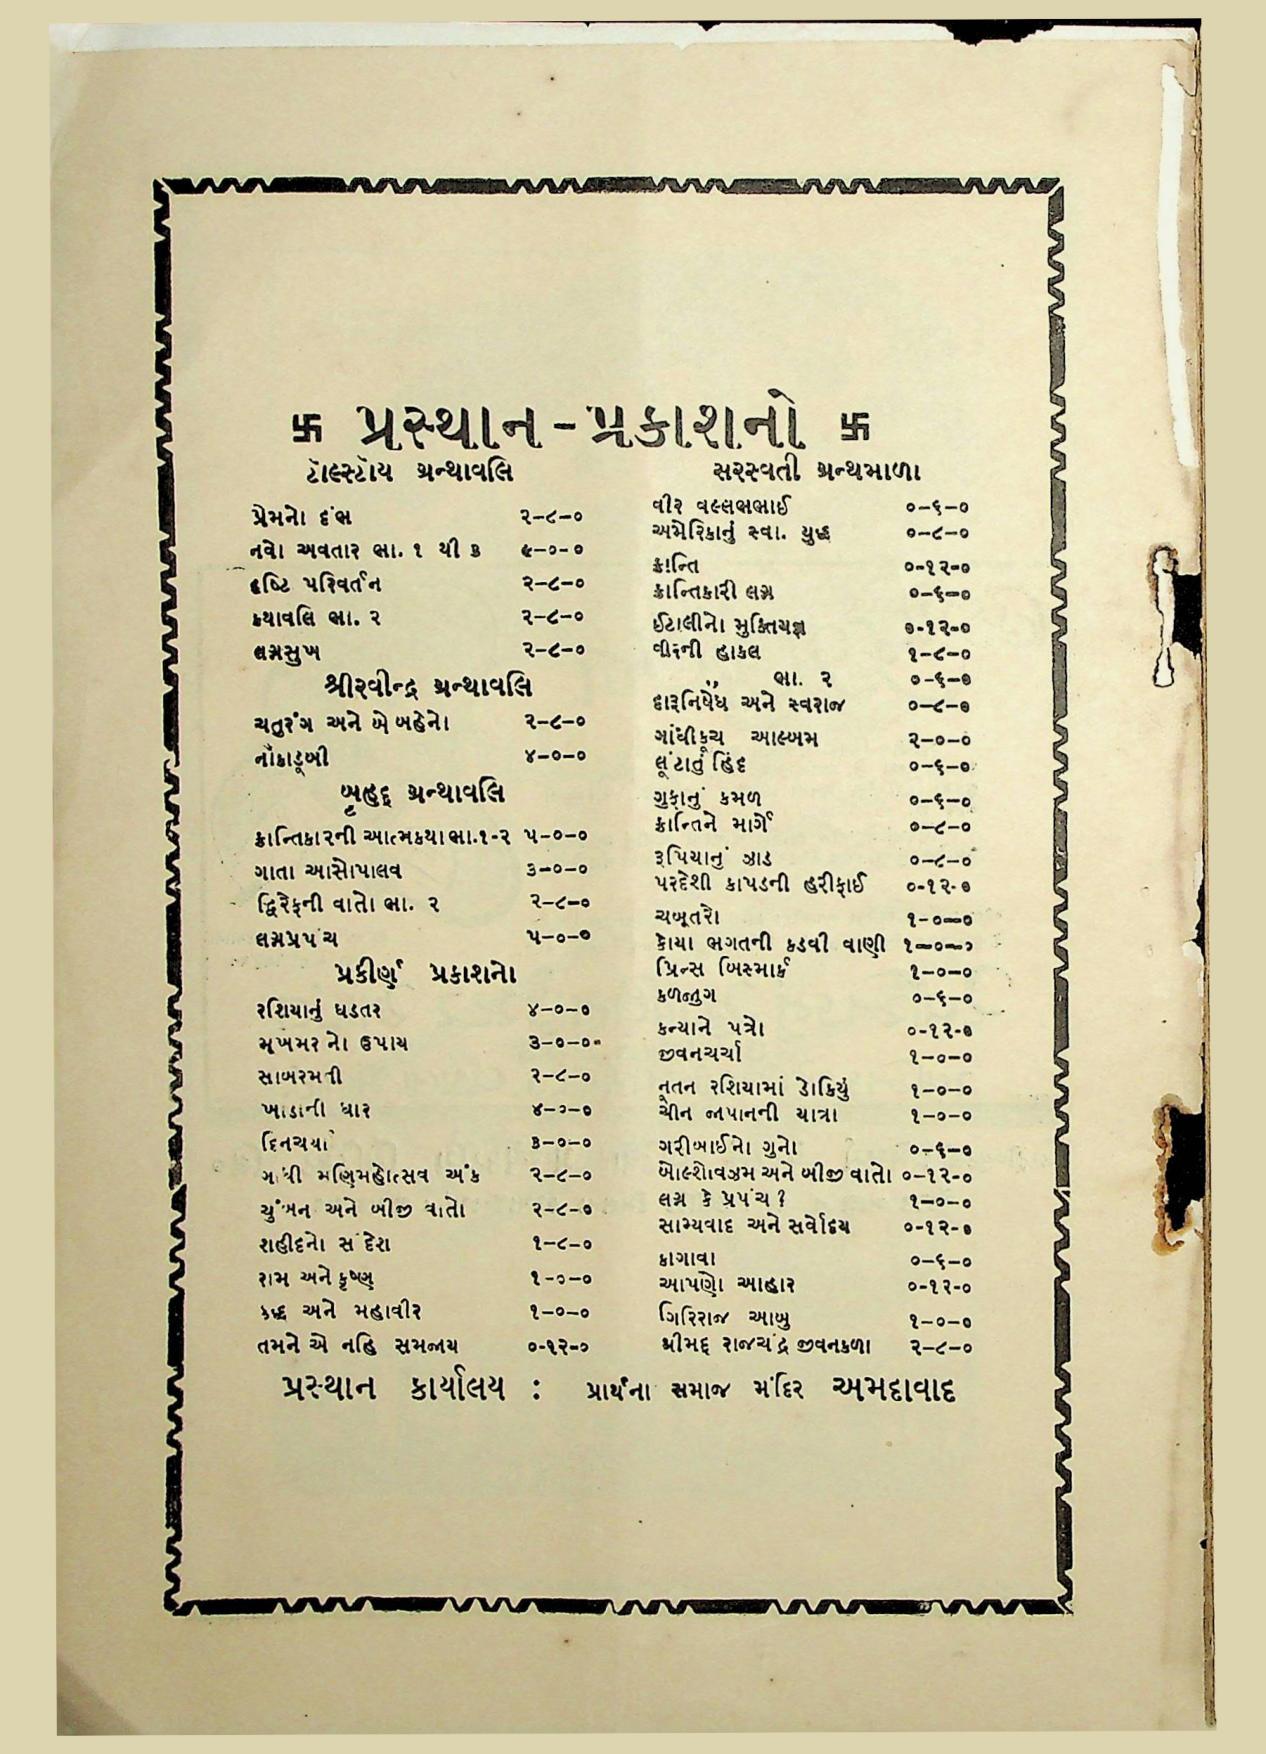 卐 પ્રસ્થાન-પ્રકાશનો 卐
ટૉલ્સ્ટૉય ગ્રન્થાવલિ
પ્રેમનો દંભ ૨-૮-૦
નવો અવતાર ભા. ૧ થી ૩ ૯-૦-૦
દૃષ્ટિ પરિવર્તન ૨-૮-૦
કથાવલિ ભા. ૨ ૨-૮-૦
લગ્નસુખ ૨-૮-૦
શ્રીરવીન્દ્ર ગ્રન્થાવલિ
ચતુરંગ અને બે બહેનો ૨-૮-૦
નૌકાડૂબી ૪-૦-૦
બૃહદ્ ગ્રન્થાવલિ
ક્રાન્તિકારની આત્મકથા ભા.૧-૨ ૫-૦-૦
ગાતા આસોપાલવ ૩-૦-૦
દ્વિરેફની વાતો ભા. ૨ ૨-૮-૦
લગ્નપ્રપંચ ૫-૦-૦
પ્રકીર્ણ પ્રકાશનો
રશિયાનું ઘડતર ૪-૦-૦
મૂખમરાનો ઉપાય ૩-૦-૦
સાબરમતી ૨-૮-૦
ખાંડાની ધાર ૪-૦-૦
દિનચર્યા ૩-૦-૦
ગાંધી મણિમહોત્સવ અંક ૨-૮-૦
ચુંબન અને બીજી વાતો ૨-૮-૦
શહીદનો સંદેશ ૧-૮-૦
રામ અને કૃષ્ણ ૧-૦-૦
બુદ્ધ અને મહાવીર ૧-૦-૦
તમને એ નહિ સમજાય ૦-૧૨-૦
સરસ્વતી ગ્રન્થમાળા
વીર વલ્લભભાઈ ૦-૬-૦
અમેરિકાનું સ્વા. યુદ્ધ ૦-૮-૦
ક્રાન્તિ ૦-૧૨-૦
ક્રાન્તિકારી લગ્ન ૦-૬-૦
ઈટાલીનો મુક્તિયજ્ઞ ૦-૧૨-૦
વીરની હાકલ ૧-૮-૦
,, ભા. ૨ ૦-૬-૦
દારૂનિષેધ અને સ્વરાજ ૦-૮-૦
ગાંધીકૂચ આલ્બમ ૨-૦-૦
લૂંટાતું હિંદ ૦-૬-૦
ગુફાનું કમળ ૦-૬-૦
ક્રાન્તિને માર્ગે ૦-૮-૦
રૂપિયાનું ઝાડ ૦-૮-૦
પરદેશી કાપડની હરીફાઈ ૦-૧૨-૦
ચબૂતરો ૧-૦-૦
કોયા ભગતની કડવી વાણી ૧-૦-૦
પ્રિન્સ બિસ્માર્ક ૧-૦-૦
કળજુગ ૦-૬-૦
કન્યાને પત્રો ૦-૧૨-૦
જીવનચર્ચા ૧-૦-૦
નૂતન રશિયામાં ડોકિયું ૧-૦-૦
ચીન જાપાનની યાત્રા ૧-૦-૦
ગરીબાઈનો ગુનો ૦-૬-૦
બોલ્શેવિઝમ અને બીજી વાતો ૦-૧૨-૦
લગ્ન કે પ્રપંચ? ૧-૦-૦
સામ્યવાદ અને સર્વોદય ૦-૧૨-૦
કાગાવા ૦-૬-૦
આપણો આહાર ૦-૧૨-૦
ગિરિરાજ આબુ ૧-૦-૦
શ્રીમદ્ રાજચંદ્ર જીવનકળા ૨-૮-૦
પ્રસ્થાન કાર્યાલય : પ્રાર્થના સમાજ મંદિર અમદાવાદ